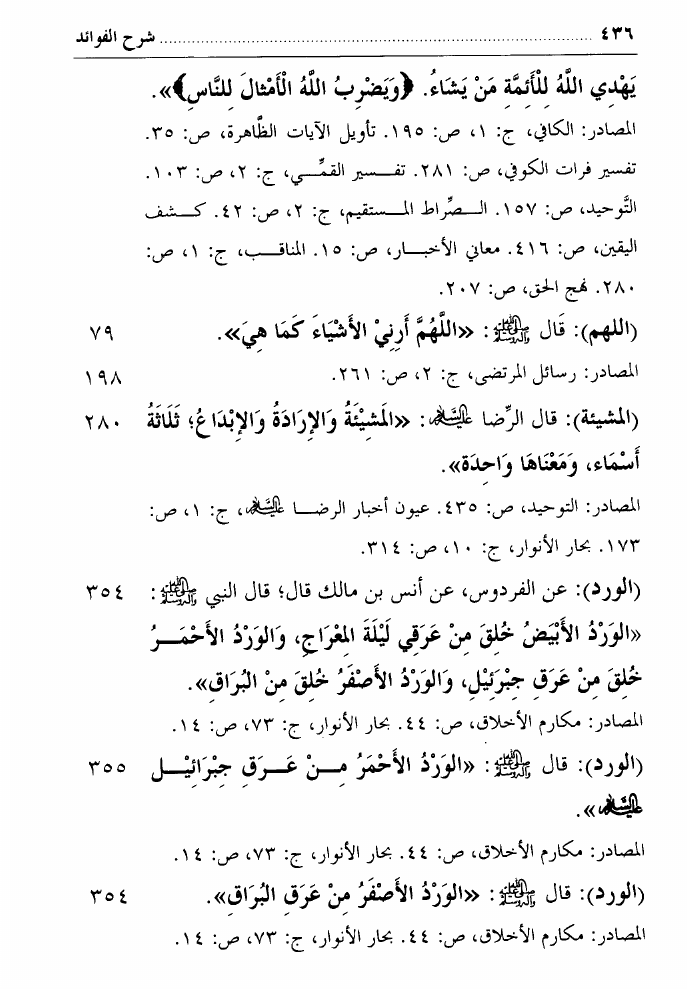 ٤٣٦ ........................................ شرح الفوائد
يَهْدِي اللَّهُ لِلْأَئِمَّةِ مَنْ يَشَاءُ. ﴿وَيَضْرِبُ اللَّهُ الْأَمْثالَ لِلنَّاسِ﴾».
المصادر: الكافي، ج: ١، ص: ١٩٥. تأويل الآيات الظَّاهرة، ص: ٣٥.
تفسير فرات الكوفي، ص: ٢٨١. تفسير القمِّي، ج: ٢، ص: ١٠٣.
التَّوحيد، ص: ١٥٧. الصِّراط المستقيم، ج: ٢، ص: ٤٢. كشف
اليقين، ص: ٤١٦. معاني الأخبار، ص: ١٥. المناقب، ج: ١، ص:
٢٨٠. نهج الحق، ص: ٢٠٧.
(اللهم): قَال ﷺ: «اللَّهُمَّ أَرِنِيْ الأَشْيَاءَ كَمَا هِيَ». ٧٩
المصادر: رسائل المرتضى، ج: ٢، ص: ٢٦١. ١٩٨
(المشيئة): قال الرِّضا عليه السلام: «الَمَشِيْئَةُ وَالإِرَادَةُ وَالإِبْدَاعُ؛ ثَلَاثَةُ ٢٨٠
أَسْمَاء، وَمَعْنَاهَا وَاحِدَة».
المصادر: التوحيد، ص: ٤٣٥. عيون أخبار الرضا عليه السلام، ج: ١، ص:
١٧٣. بحار الأنوار، ج: ١٠، ص: ٣١٤.
(الورد): عن الفردوس، عن أنس بن مالك قال؛ قال النبي ﷺ: ٣٥٤
«الوَرْدُ الأَبْيَضُ خُلِقَ مِنْ عَرَقِي لَيْلَةَ المِعْرَاجِ، وَالوَرْدُ الأَحْمَرُ
خُلِقَ مِنْ عَرَقِ جِبْرَئِيْلِ، وَالوَرْدُ الأَصْفَرُ خُلِقَ مِنْ البُرَاقِ».
المصادر: مكارم الأخلاق، ص: ٤٤. بحار الأنوار، ج: ٧٣، ص: ١٤.
(الورد): قال ﷺ: «الوَرْدُ الأَحْمَرُ مِنْ عَرَقِ جِبْرَائِيْل ٣٥٥
عليه السلام».
المصادر: مكارم الأخلاق، ص: ٤٤. بحار الأنوار، ج: ٧٣، ص: ١٤.
(الورد): قال ﷺ: «الوَرْدُ الأَصْفَرُ مِنْ عَرَقِ البُرَاقِ». ٣٥٤
المصادر: مكارم الأخلاق، ص: ٤٤. بحار الأنوار، ج: ٧٣، ص: ١٤.